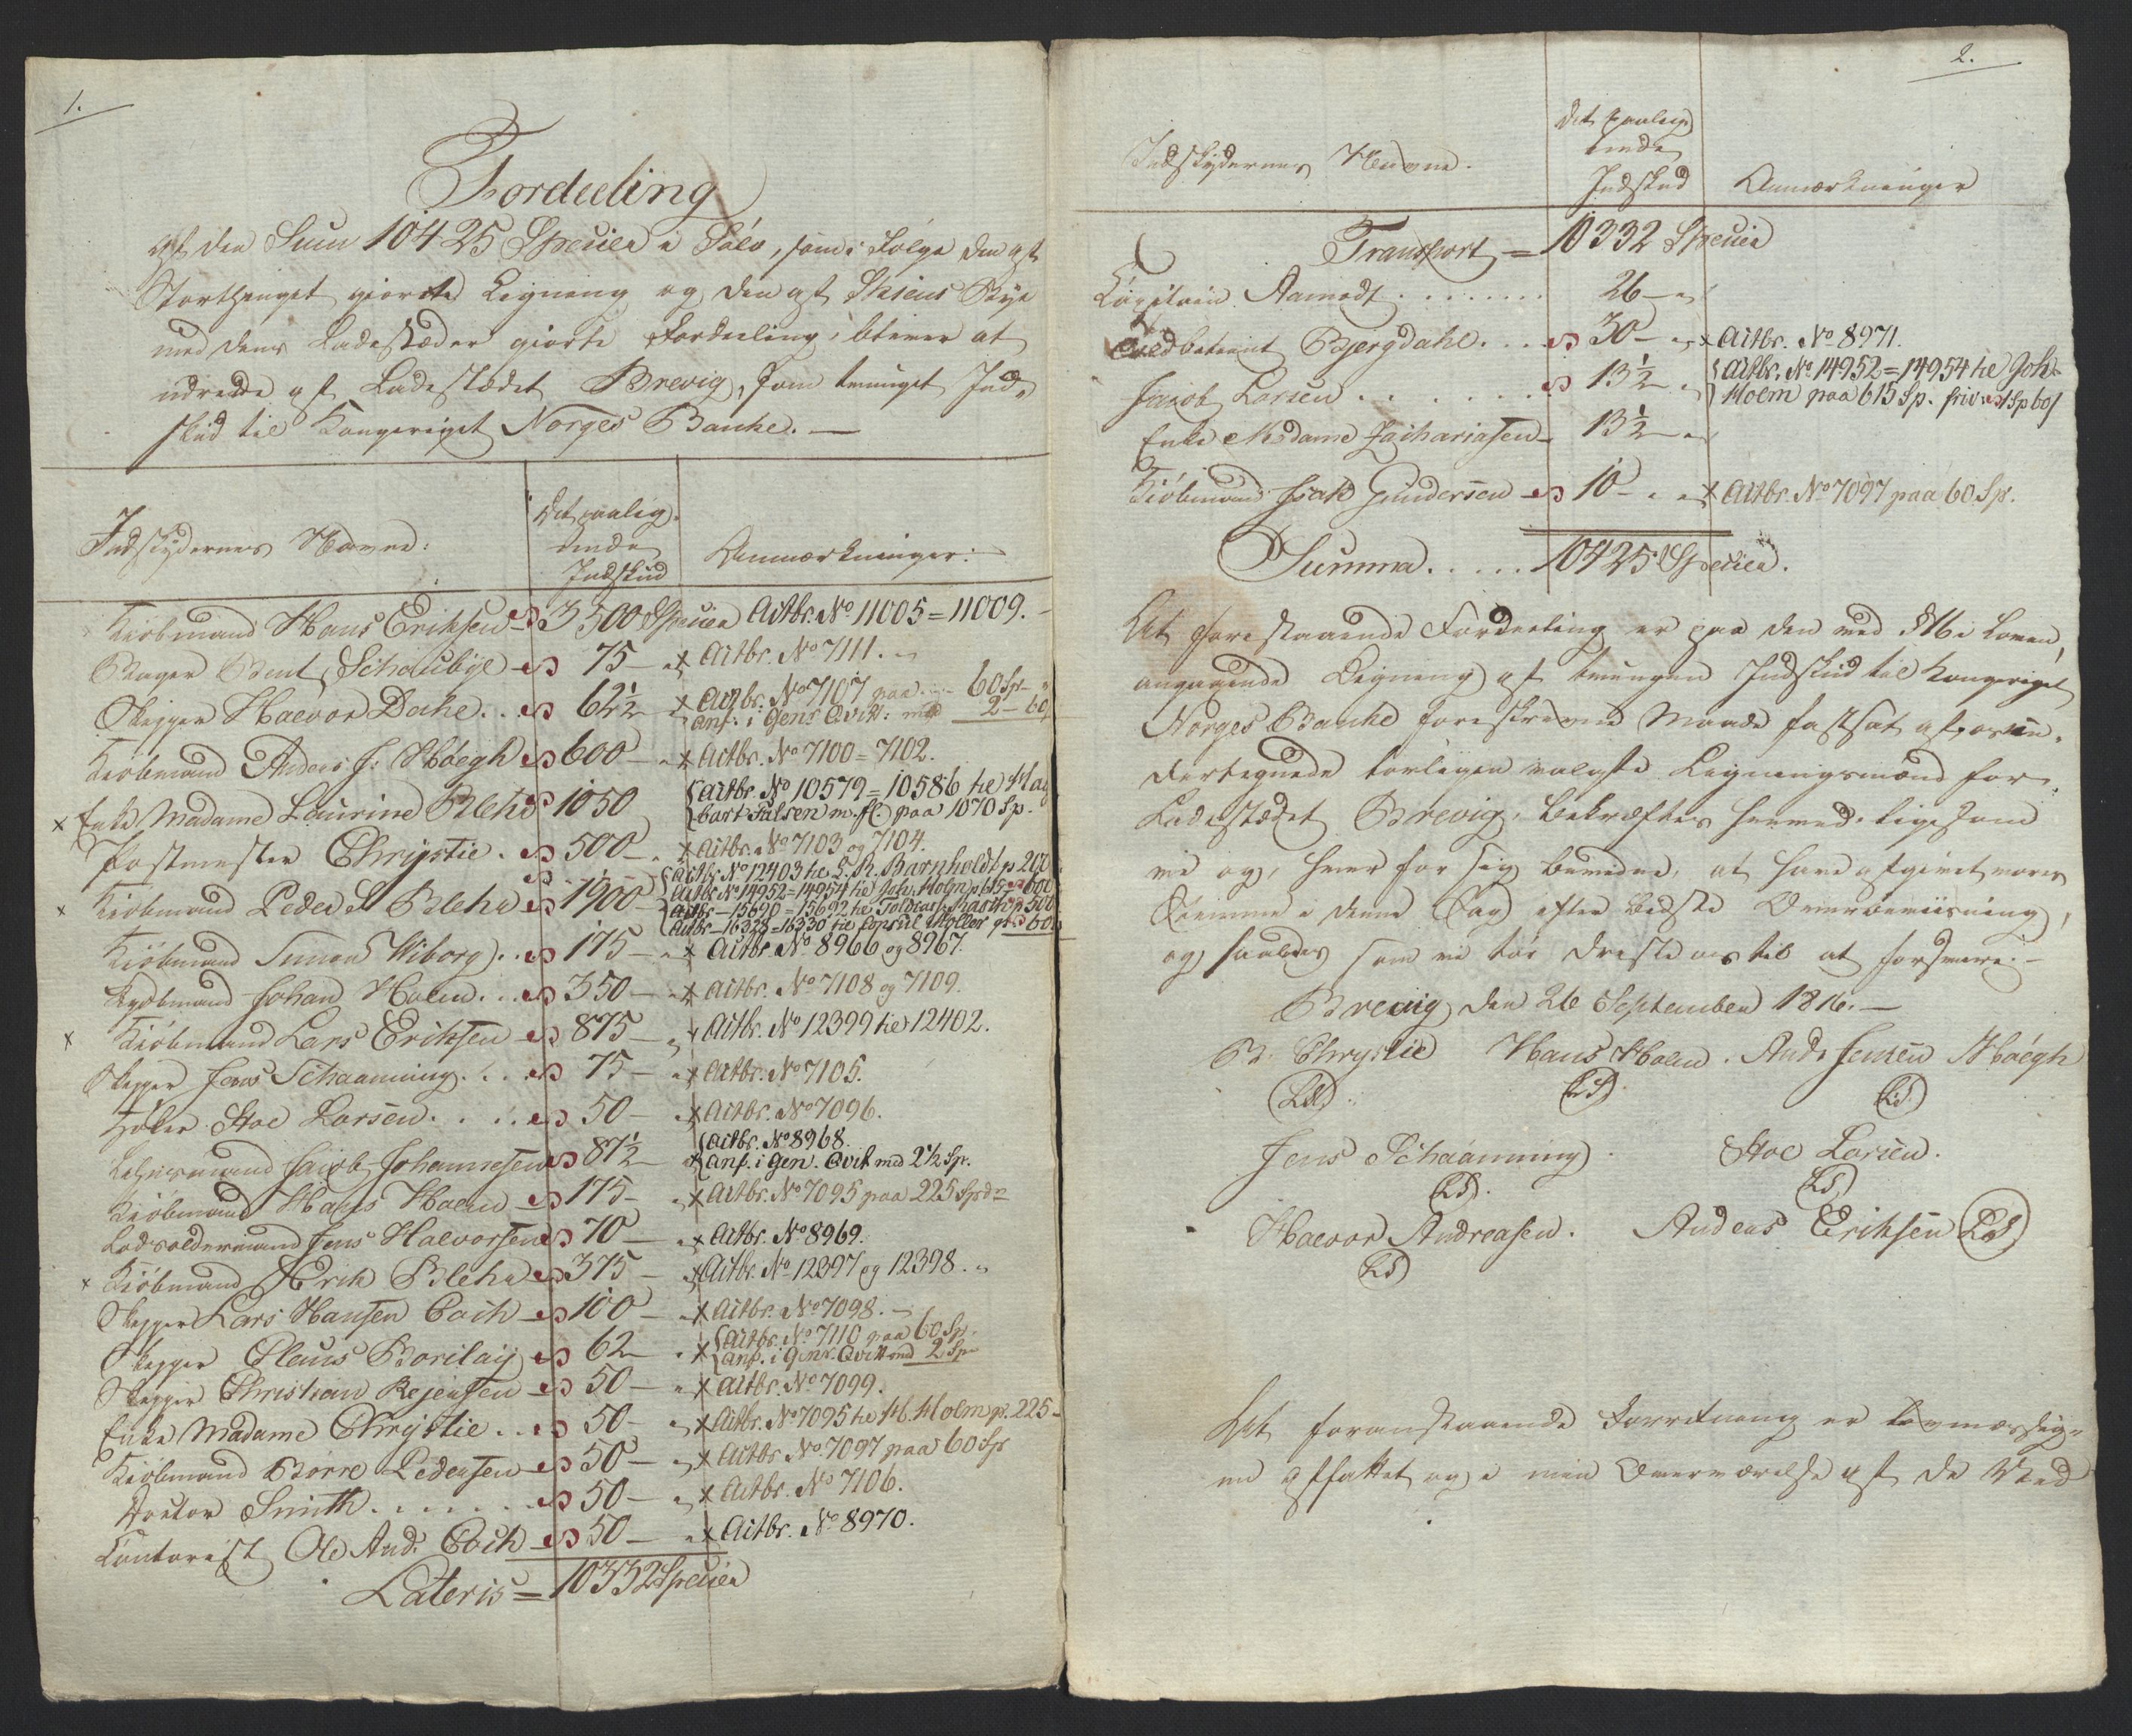 1.
Fordeeling
af den Sum 10425 Species i Sölv, som i Følge den af
Storthinget giorte Ligning og den af Skiens Bye
med dens Ladestæder giorte Fordeeling, bliver at
udrede af Ladestædet Brevig, som tvunget Ind-
skud til Kongeriget Norges Banke. —
Indskydernes Navne:
Det paalig-
ende
Indskud
Anmærkninger:
Kiöbmand Hans Eriksen 3500 Specier Actbr. No 11005 = 11009.
Bager Bent Schoubye 75 — x Actbr. No 7111.
Skipper Halvor Dahl . . 62½ x Actbr. No 7107 paa 60 Sp.
anf. i Genr Qvitt: med 2 - 60
Kiöbmand Anders J: Höegh 600 — x Actbr. No 7100 = 7102.
x Enke Madame Laurine Blehr 1050 Actbr No 10579 = 10586 til Hag
bart Falsen m. fl. paa 1070 Sp.
Postmester Chrystie . 500 — x Actbr. No 7103 og 7104.
x Kiöbmand Peder Blehr 1900 — Actbr No 12403 til L. R. Barnholdt p 200
Actbr No 14952 = 14954 til Joh. Holm p 615 600
Actbr — 15690 = 15692 til Toldcass. Barth p 500
Actbr — 16328 = 16330 til Consul Möller p 600
Kiöbmand Simon Wiborg . . 175 — x Actbr. No 8966 og 8967.
Kyöbmand Johan Holm . . 350 — x Actbr. No 7108 og 7109.
x Kiöbmand Lars Eriksen 875 — Actbr. No 12399 til 12402.
Skipper Jens Schaanning . . 75 — x Actbr. No 7105.
Höker Stoe Larsen . . . 50 — x Actbr. No 7096.
Lehnsmand Jacob Johannesen 87½ Actbr. No 8968.
x anf. i Gen. Qvit med 2½ Sp.
Kiöbmand Hans Holm 175 — x Actbr. No 7095 paa 225 Spd
Lodsoldermand Jens Halvorsen 70 — x Actbr. No 8969.
x Kiöbmand Erik Blehr 375 — x Actbr. No 12397 og 12398.
Skipper Lars Hansen Coch 100 — x Actbr. No 7098.
Skipper Claus Borilaij 62 — x Actbr. No 7110 paa 60 Sp.
anf. i Genr. Qvitt med 2 Sp
Skipper Christian Rejersen 50 — x Actbr. No 7099.
Enke Madame Chrystie . . 50 — x Actbr. No 7095 til H. Holm p. 225 —
Kiöbmand Börre Pedersen 50 — x Actbr No 7097 paa 60 Sp
Doctor Smith . . . . . . 50 — x Actbr. No 7106.
Contorist Ole And: Coch 50 — x Actbr. No 8970.
Lateris = 10332 Specier
2.
Indskydernes Navne.
Det paalig
ende
Indskud
Anmærkninger
Transport = 10332 Specier
Capitain Aamodt . . . . . . . . 26 —
Toldbetient Bjergdahl . . . 30 — x Actbr. No 8971.
Jacob Larsen . . . . . . . 13½ Actbr. No 14952 = 14954 til Joh.
Holm paa 615 Sp.
Enke Madame Zachariasen 13½ —
Kiöbmand Isak Gundersen 10 — x Actbr. No 7097 paa 60 Sp.
Summa . . . . . 10425 Specier.
At forestaaende Fordeeling er paa den med § 16 i Loven,
angaaende Ligning af tvungen Indskud til Kongeriget
Norges Banke foreskrevne Maade fastsat af os un-
dertegnede lovligen valgte Ligningsmænd for
Ladestædet Brevig, bekræftes herved, ligesom
vi og, hver for sig bevidne, at have afgivet vores
Stemme i denne Sag efter bedste Overbeviisning,
og saaledes som vi tör driste os til at forsvare. —
Brevig den 26 September 1816. —
P: Chrystie Hans Holm . And: Jensen Höegh
(LS) (LS) (LS)
Jens Schaanning . Stoe Larsen.
(LS) (LS)
Halvor Andreasen . Anders Eriksen (LS)
(LS)
At foranstaaende Forretning er lovmæssig-
en affattet og i min Overværelse af de Ved-